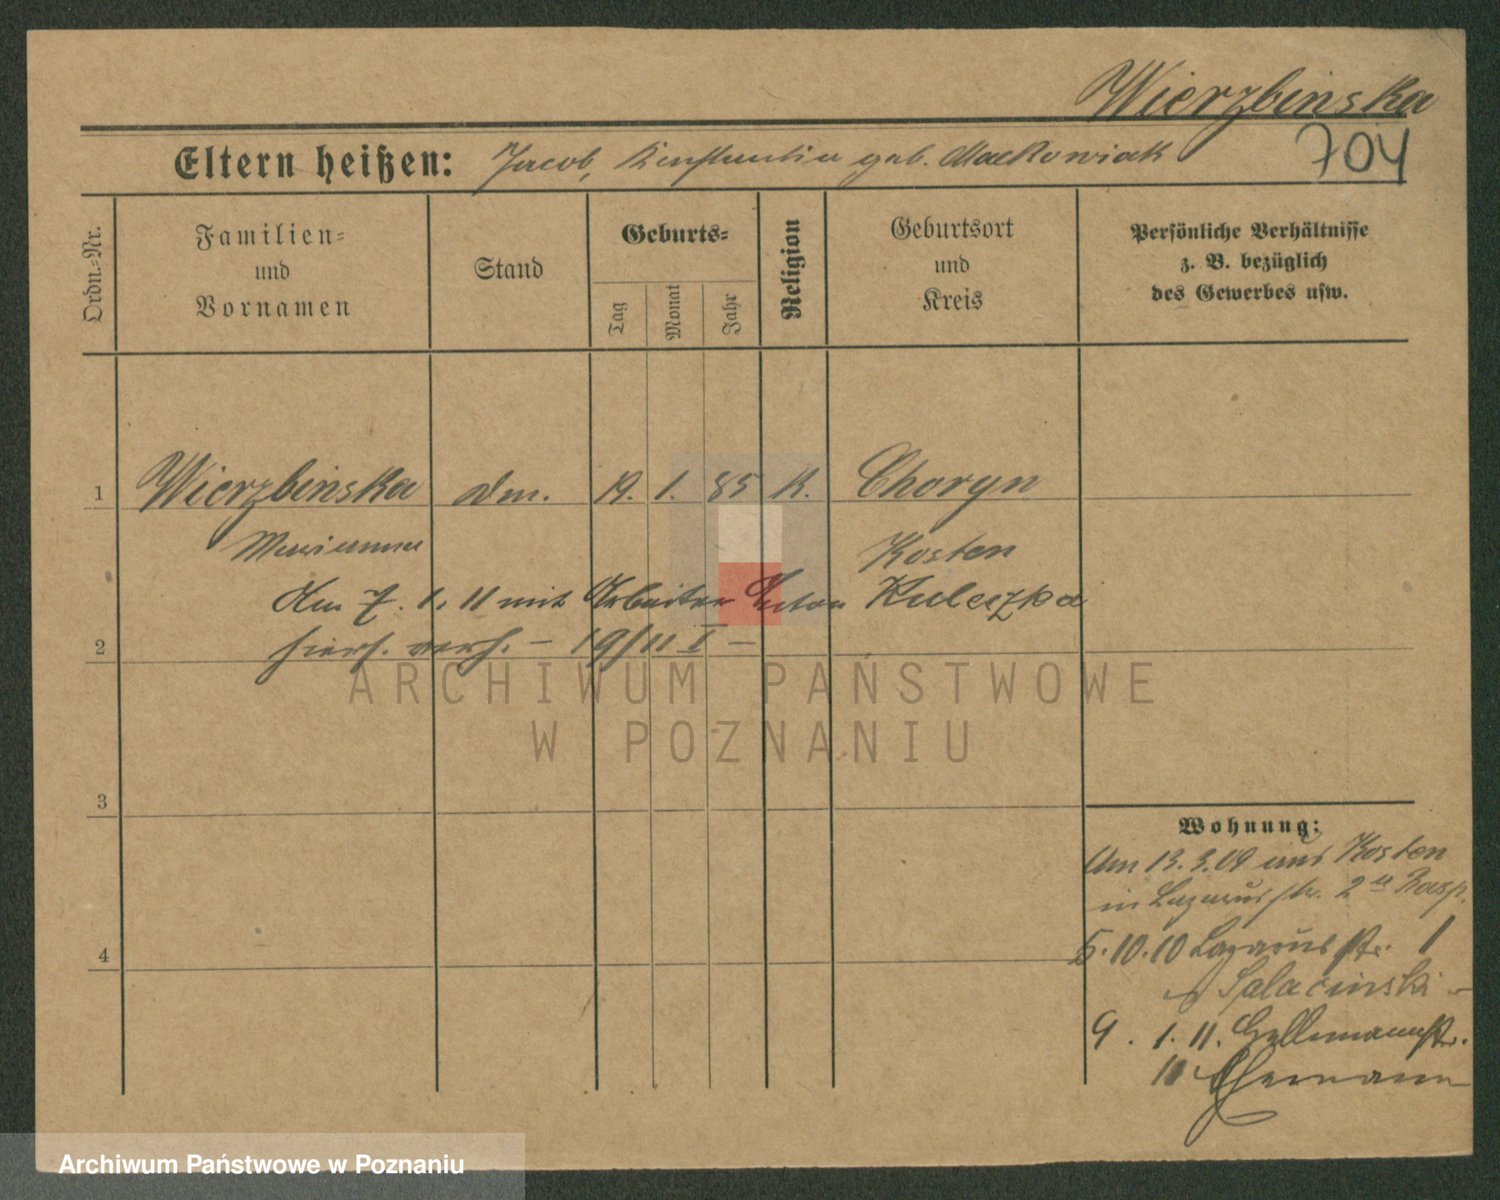 Wierzbinska
Eltern heißen: Jacob, Konstantia geb. Mackowiak 704
Ordn.-Nr.
Familien-
und
Vornamen
Stand
Geburts-
Tag
Monat
Jahr
Religion
Geburtsort
und
Kreis
Persönliche Verhältnisse
z. B. bezüglich
des Gewerbes usw.
1 Wierzbinska Dm. 19. 1. 85 K. Choryn
Marianna Kosten
Am 7. 1. 11 mit Arbeiter Anton Kuleczka
2 hiers. verh. – 19/11 I –
ARCHIWUM PAŃSTWOWE
W POZNANIU
3
Wohnung:
Am 13. 3. 09 aus Kosten
in Lazarusstr. 2
4
5. 10. 10 Lazarusstr. 1
9. 1. 11.
11
Archiwum Państwowe w Poznaniu